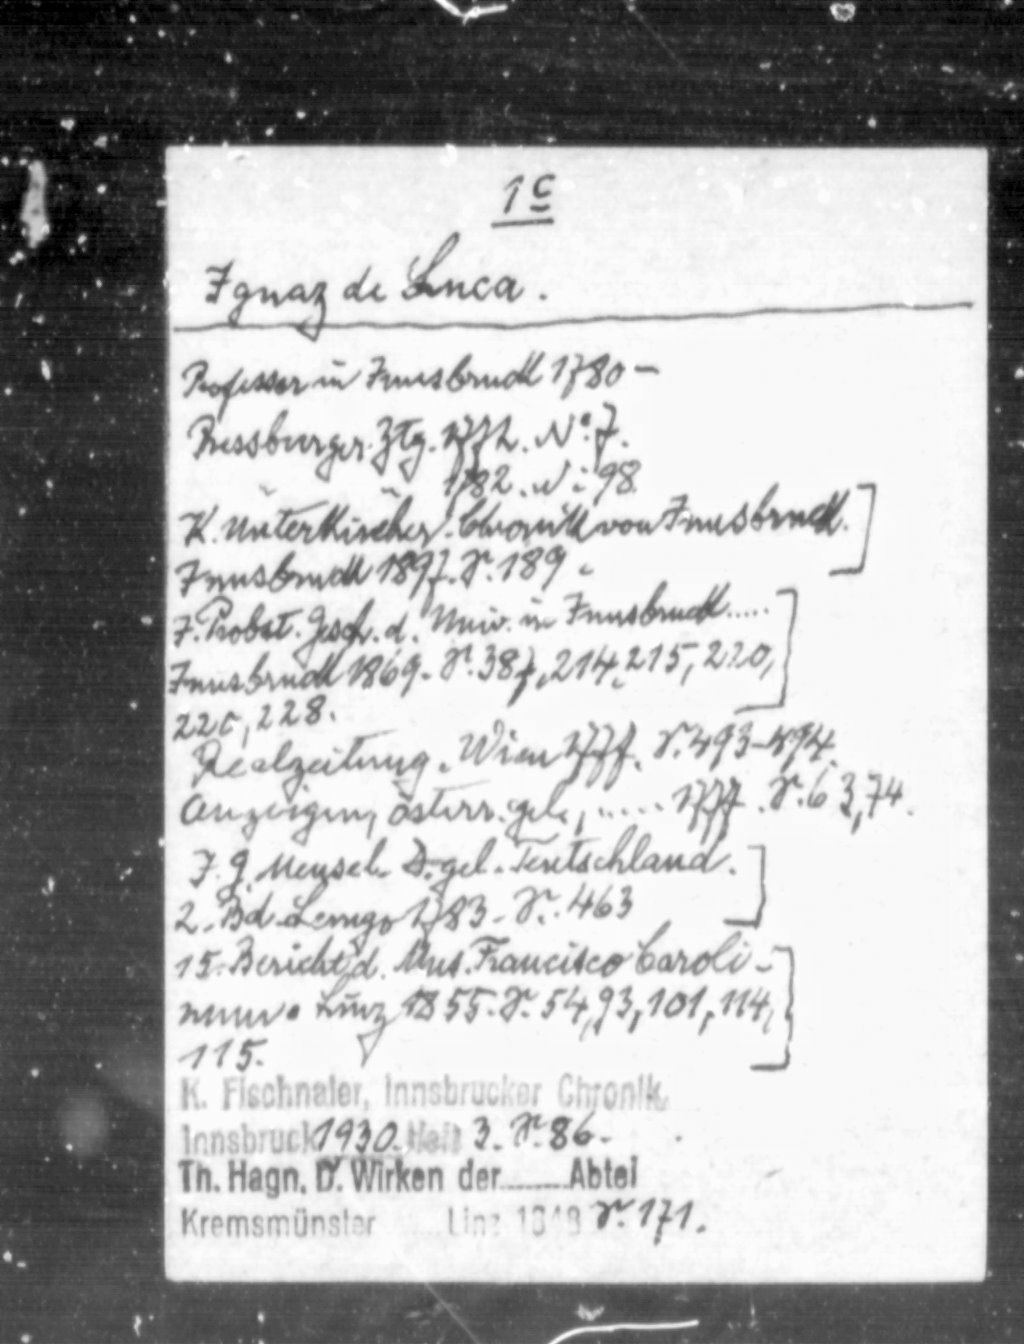 1c
Ignaz de Luca.
Professor in Innsbruck 1780 –
Pressburger Ztg. 1772. No. 7.
1782. N: 98
K. Unterkircher. Chronik von Innsbruck.
Innsbruck 1897. S. 189.
J. Probst. Gesch. d. Univ. in Innsbruck.....
Innsbruck 1869. S. 214, 215, 220,
228.
Realzeitung. Wien 1777. S. 493-494.
Anzeigen, österr. gel., ..... 1777. S. 63, 74.
J. G. Meusel. D. gel. Teutschland.
2. Bd. Lemgo 1783. S. 463
15. Bericht d. Mus. Francisco Caroli-
num. Linz 1855. S. 54, 93, 101, 114,
115.
K. Fischnaler, Innsbrucker Chronik.
Innsbruck 1930. Heft 3. S. 86.
Th. Hagn. D. Wirken der ........ Abtei
Kremsmünster ..... Linz 1848 S. 171.